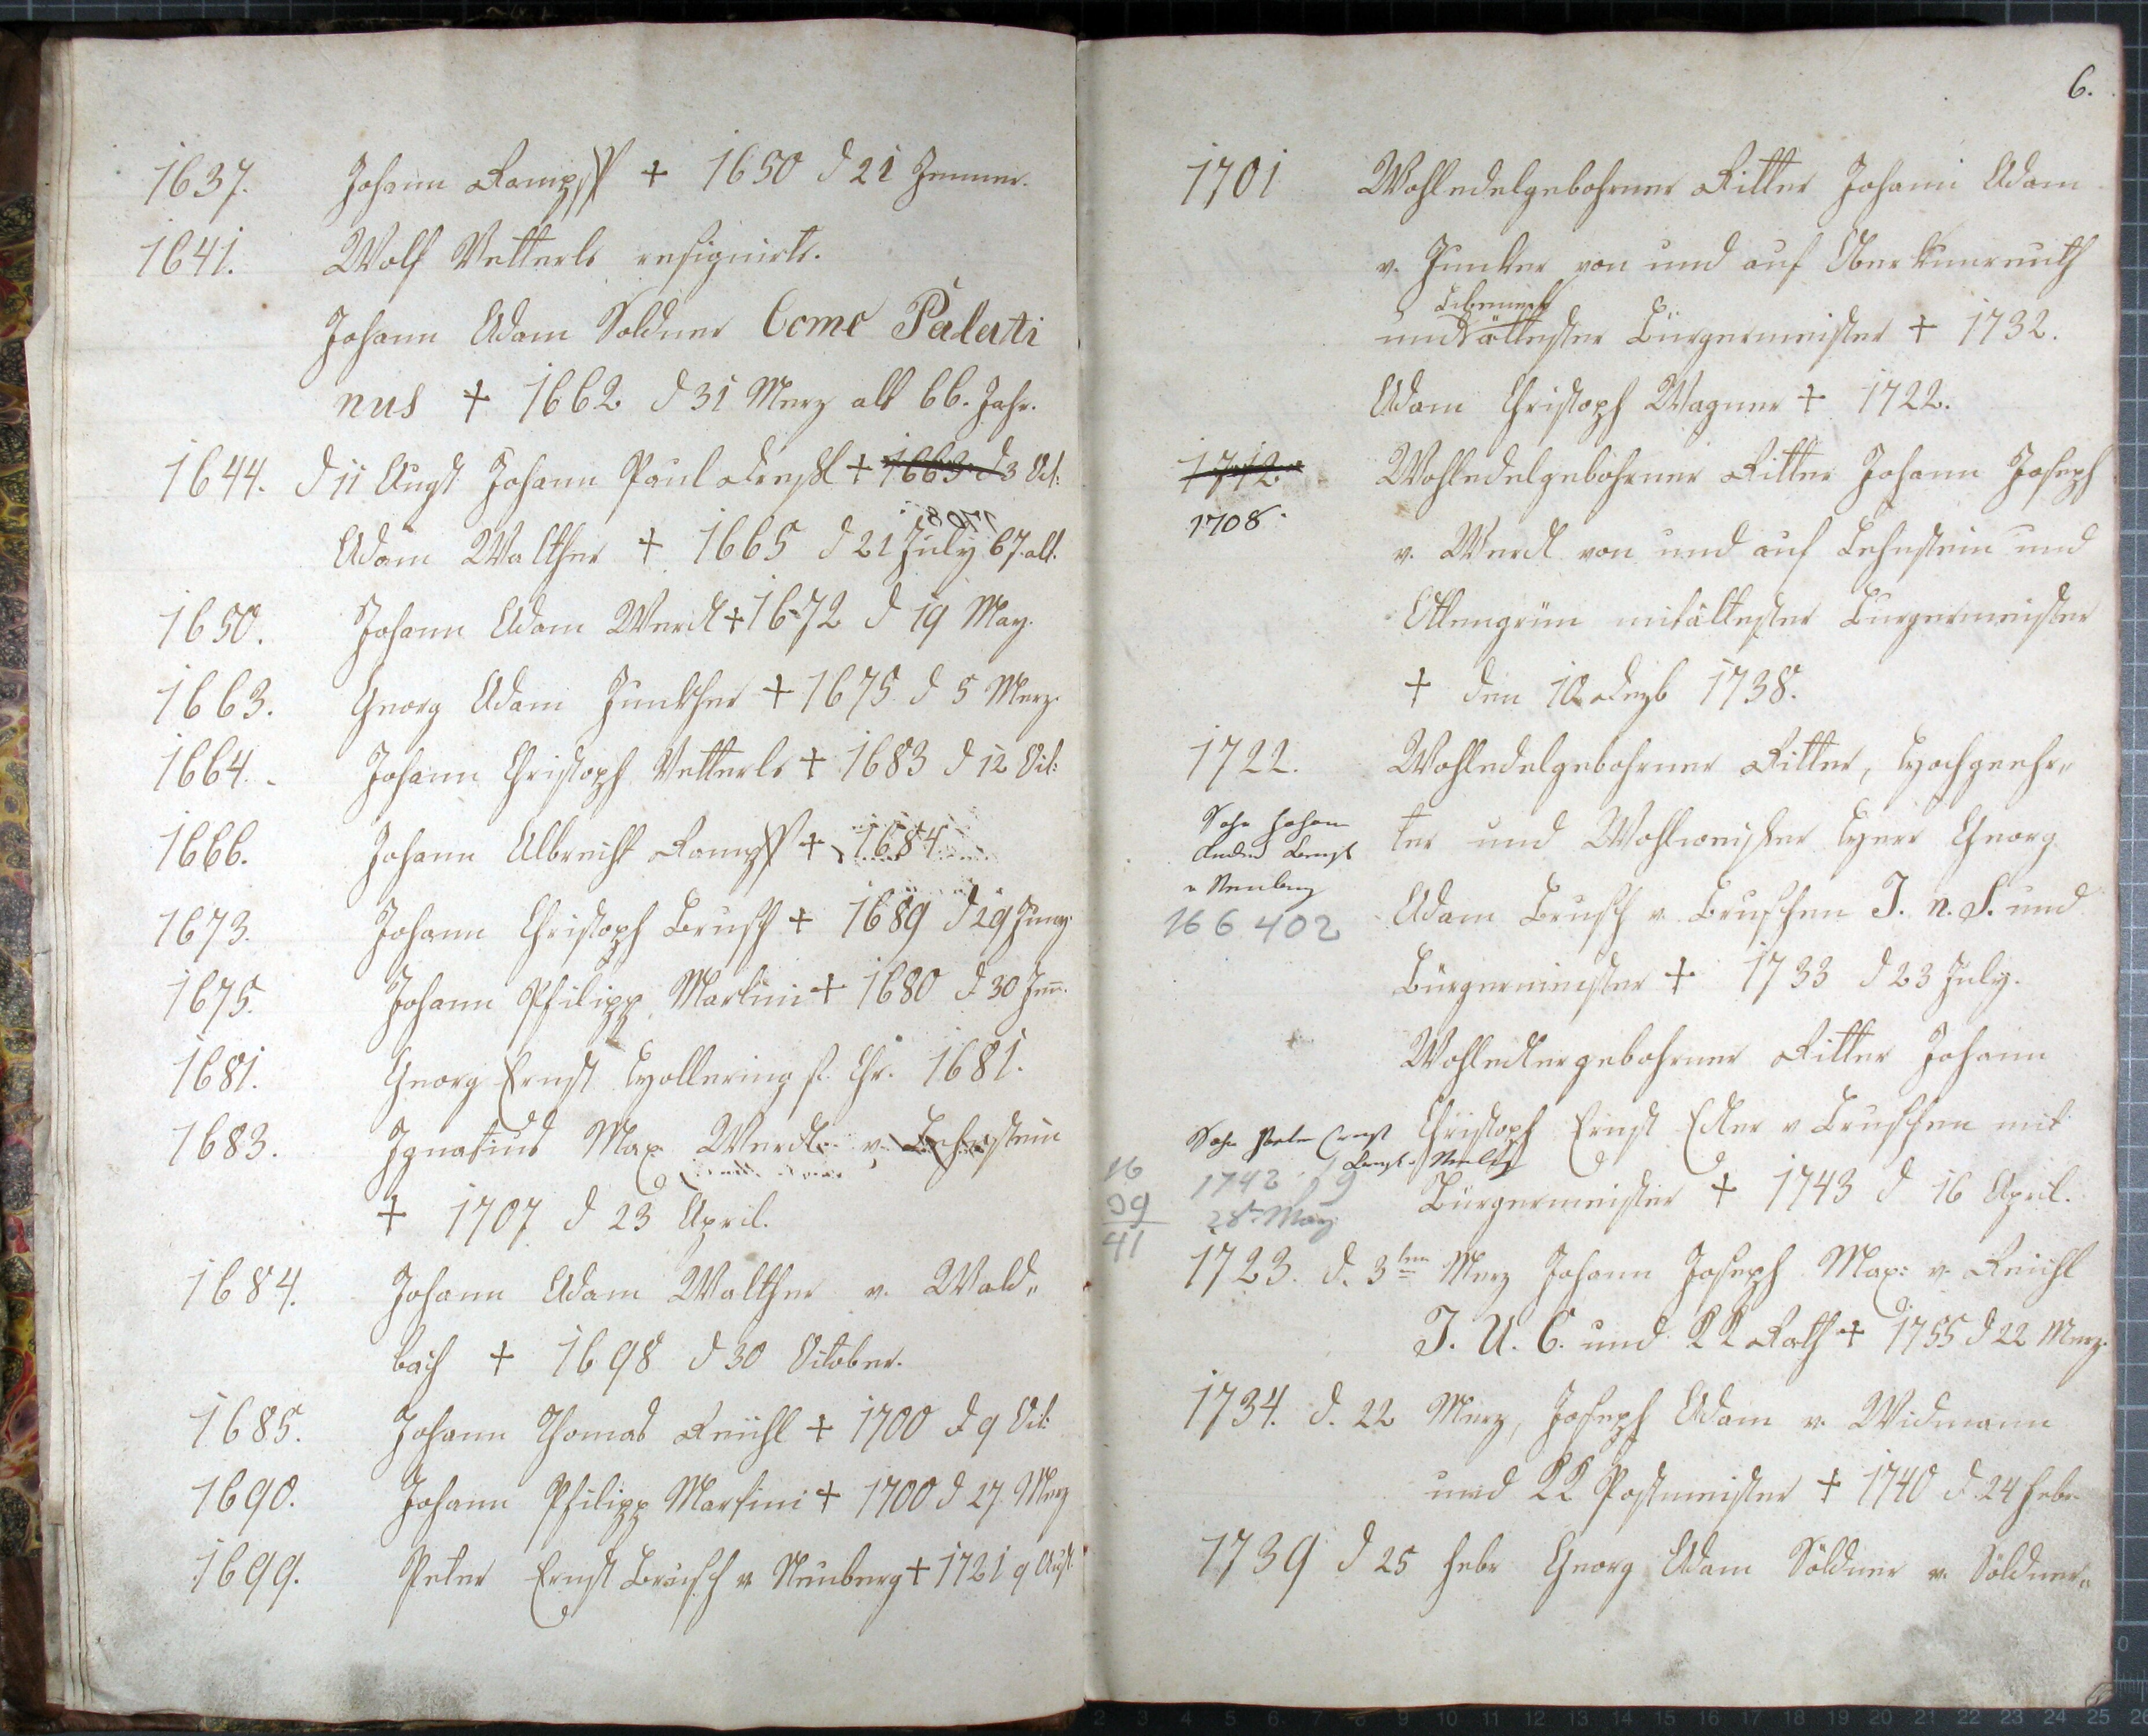 1637. Johann Rampff † 1650 d 21 Jenner.
1641. Wolf Vetterls resignirte.
Johann Adam Soldner Come Palati
nus † 1662 d 31 Merz alt 66. Jahr.
1644. d 11 Augst Johann Paul † 1663 d 3 Oct:
1708
Adam Walther † 1665 d 21 July 67. alt.
1650. Johann Adam Werdl † 1672 d 19 May.
1663. Georg Adam Junkher † 1675 d 5 Merz.
1664. Johann Christoph Vetterls † 1683 d 12 Oct:
1666. Johann Albrecht Rampff † 1684
1673. Johann Christoph Brusch † 1689 d 29 Juny
1675. Johann Philipp Martini † 1680 d 30 Jen.
1681. Georg Ernst Hollering 1681.
1683. Ignatius Max Werdl v. Lehnstein
† 1707 d 23 April.
1684. Johann Adam Walther v. Wald„
bach † 1698 d 30 October.
1685. Johann Thomas Reichl † 1700 d 9 Oct:
1690. Johann Philipp Martini † 1700 d 27 Merz
1699. Peter Ernst Brusch v Neuberg † 1721 9 Aust.
6.
1701 Wohledelgebohrner Ritter Johann Adam
v. Junker von und auf Oberkunreuth
und ältester Bürgermeister † 1732.
Adam Christoph Wagner † 1722.
1712 Wohledelgebohrner Ritter Johann Joseph
1708.
v. Werdl von und auf Lehnstein und
Ottengrün mitältester Burgermeister
† den 10 Dezb 1738.
1722. Wohledelgebohrner Ritter, Hochgeehr„
ter und Wohlweister Herr Georg
Sohn Johann
v Neuberg
166 402
Adam Brusch v. Bruschen J. n. S. und
Bürgermeister † 1733 d 23 July.
Wohledlergebohrner Ritter Johann
Christoph Ernst Edler v Bruschen mit
Sohn Peter Ernst
16
09
41
1742 19
28t May
Bürgermeister † 1743 d 16 April.
1723. d. 3ten Merz Johann Joseph Max: v. Reichl
J. U. C. und KK Rath † 1755 d 22 Merz.
1734. d. 22 Merz, Joseph Adam v. Widmann
und KK Postmeister † 1740 d 24 Febr.
1739 d 25 Febr Georg Adam Söldner v. Söldner„